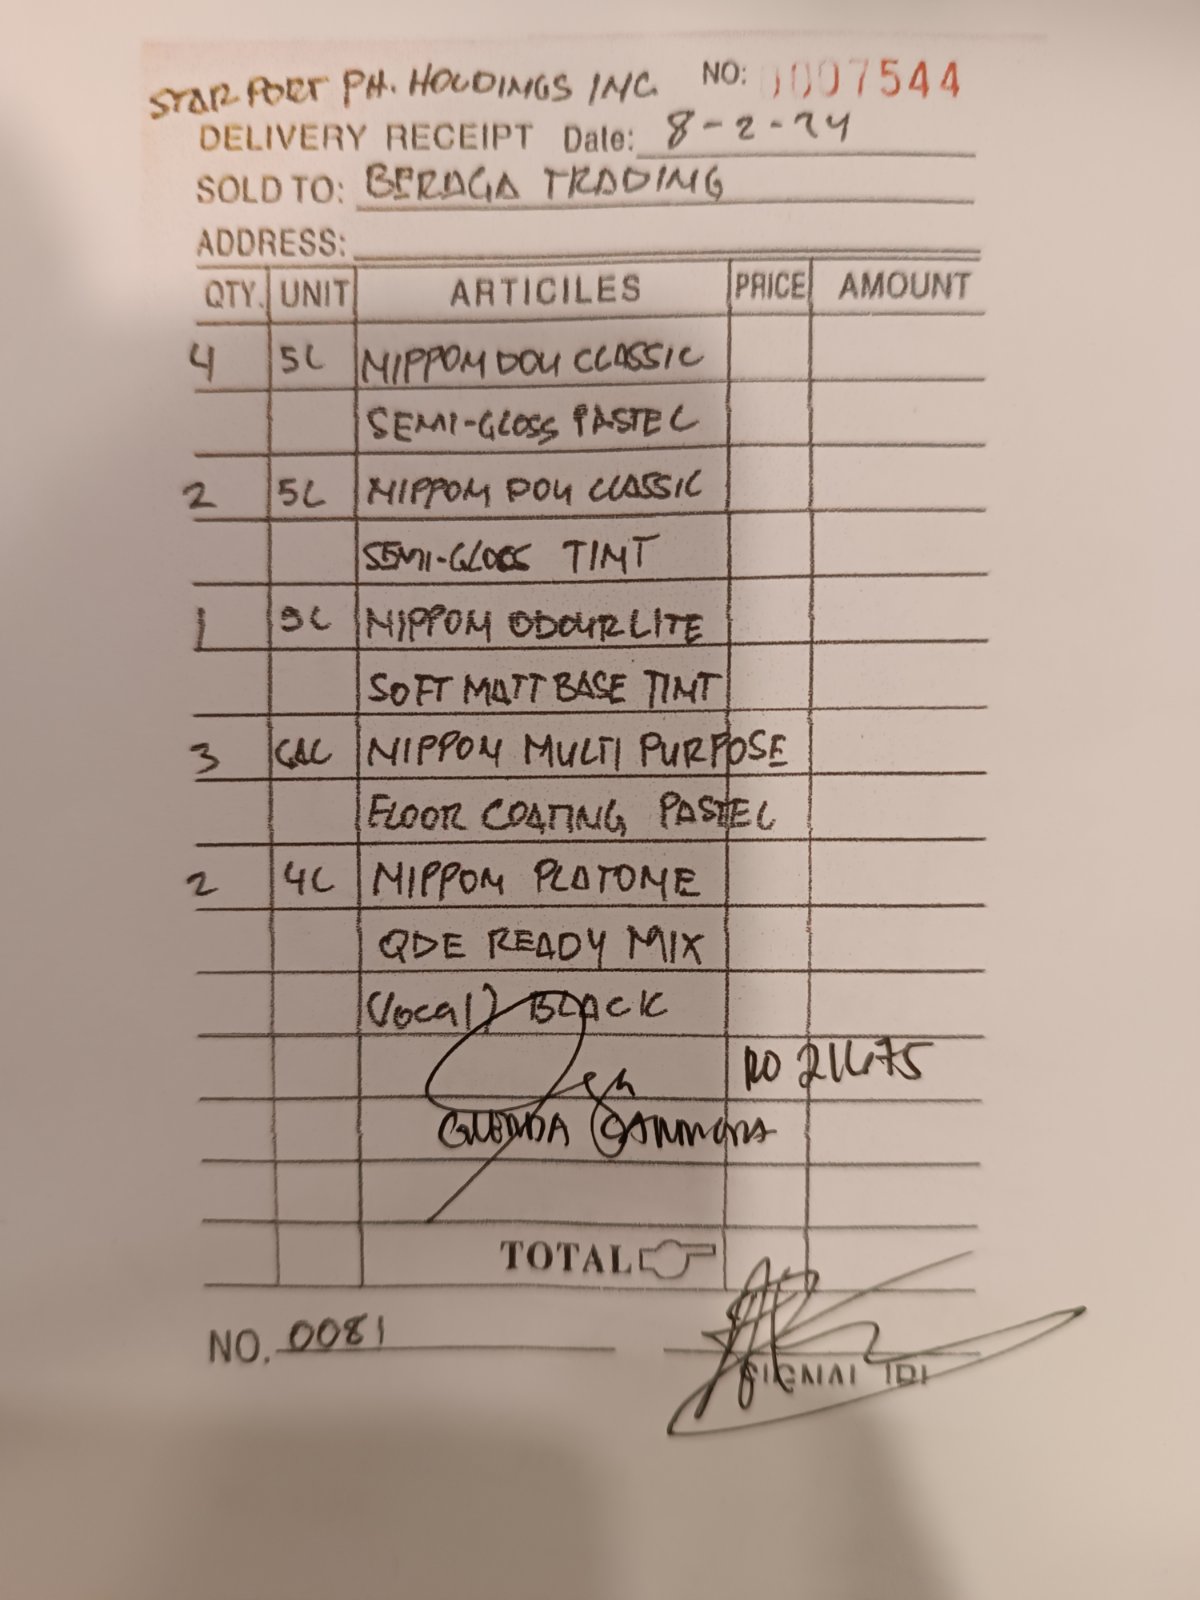 STARPORT PH. HOLDINGS INC. NO: 0007544
DELIVERY RECEIPT Date: 8-2-24
SOLD TO: BERAGA TRADING
ADDRESS:
QTY. UNIT ARTICILES PRICE AMOUNT
4 5L NIPPON DOU CLASSIC
SEMI-GLOSS PASTEL
2 5L NIPPON DOU CLASSIC
SEMI-GLOSS TINT
1 5L NIPPON ODOURLITE
SOFT MATT BASE TINT
3 GAL NIPPON MULTI PURPOSE
FLOOR COATING PASTEL
2 4L NIPPON PLATONE
QDE READY MIX
(local) BLACK
TOTAL
NO. 0081